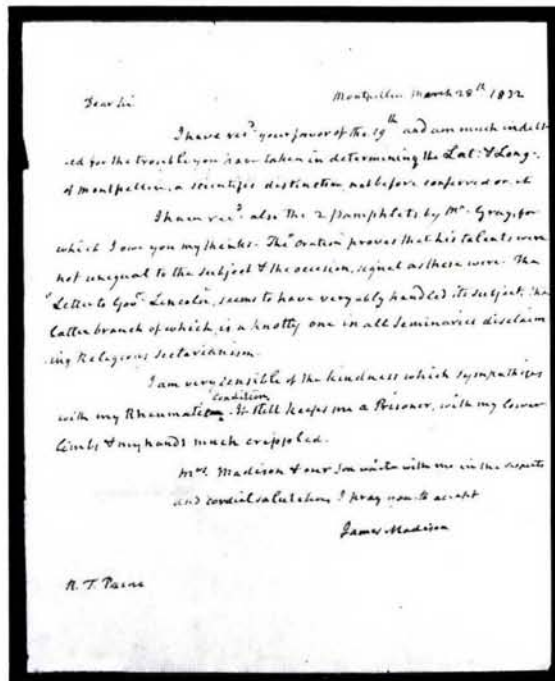 Montpellier March 28th 1832
Dear Sir
I have recd. your favor of the 19th and am much indebt
-ed for the trouble you have taken in determining the Lat: & Long:
of Montpellier, a scientific distinction not before conferred on it
I have recd. also the 2 pamphlets by Mr. Gray, for
which I owe you my thanks. The oration proves that his talents were
not unequal to the subject & the occasion, signal as these were. The
"Letter to Govr. Lincoln, seems to have very ably handled its subject; the
latter branch of which is a knotty one in all Seminaries disclaim
-ing Religious Sectarianism.
I am very sensible of the kindness which sympathizes
with my Rheumatic condition. It still keeps me a Prisoner, with my lower
limbs & my hands much crippled.
Mrs. Madison & our Son unite with me in the respects
and cordial salutations I pray you to accept
James Madison
R. T. Paine